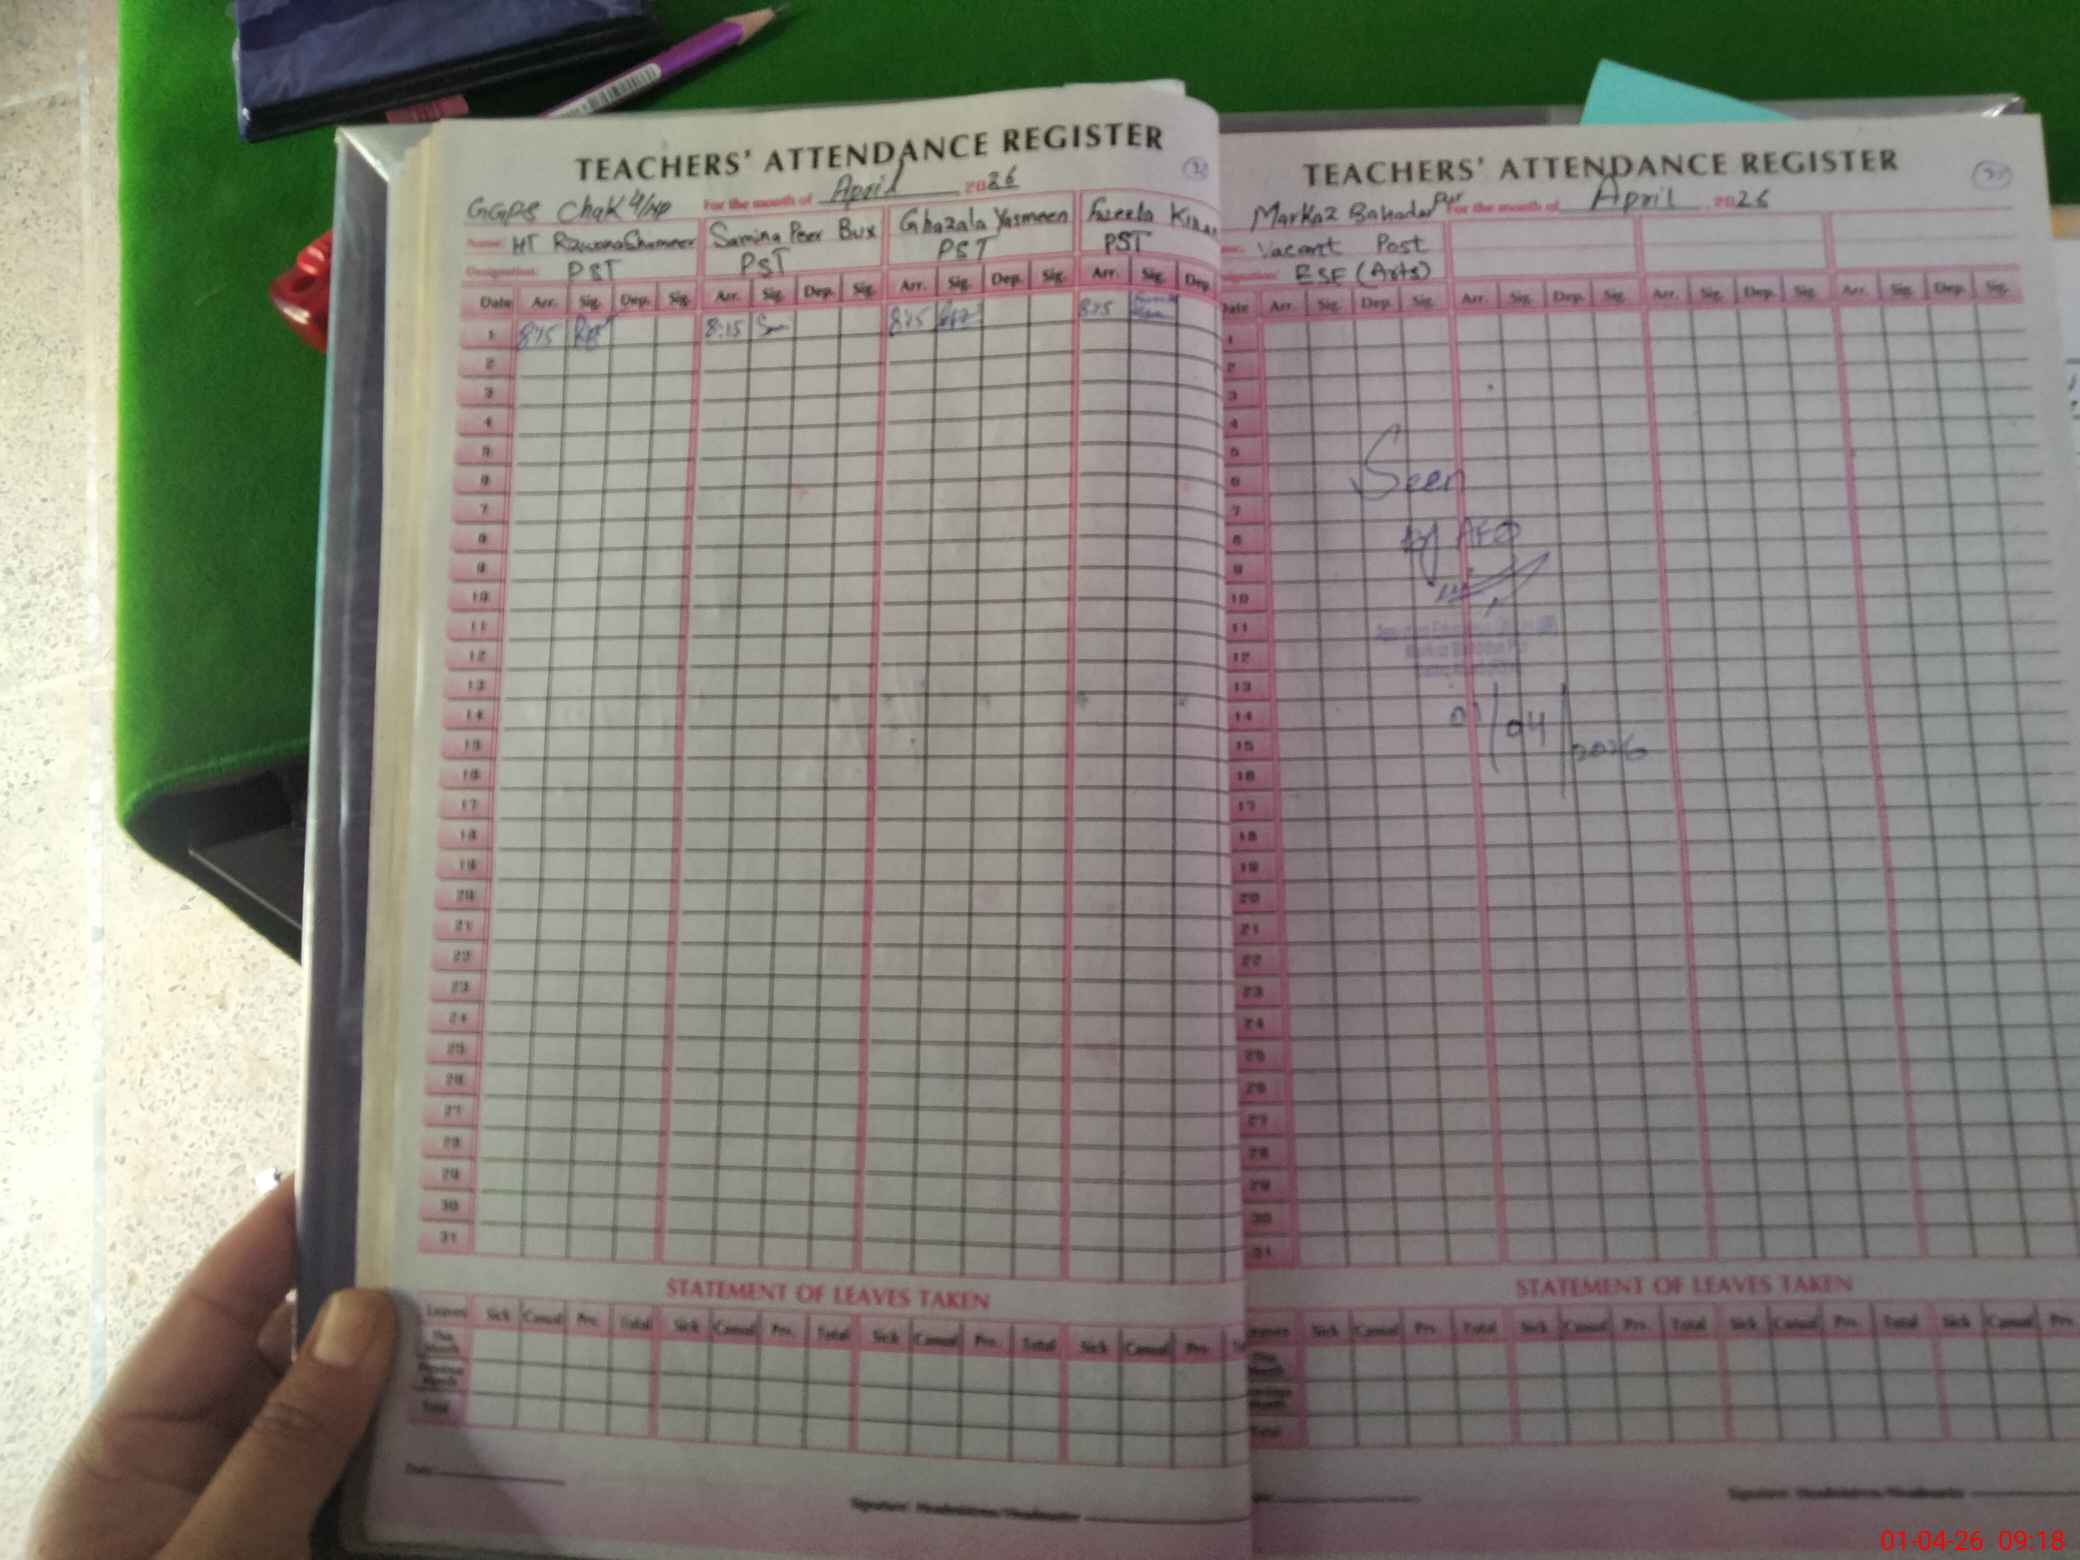 TEACHERS' ATTENDANCE REGISTER
GGPS Chak 4/NP For the month of April 2026
Name: HT Rizwana Shameer Samina Peer Bux Ghazala Yasmeen Fazeela Kiran
Designation: PST PST PST PST
Date Arr. Sig. Dep. Sig. Arr. Sig. Dep. Sig. Arr. Sig. Dep. Sig. Arr. Sig. Dep.
1 8:15 8:15 8:15 8:15
2
3
4
5
6
7
8
9
10
11
12
13
14
15
16
17
18
19
20
21
22
23
24
25
26
27
28
29
30
31
STATEMENT OF LEAVES TAKEN
Leaves Sick Casual Prv. Total Sick Casual Prv. Total Sick Casual Prv. Total Sick Casual Prv.
This Month
Previous Month
Total
Date:
Signature: Headmistress/Headmaster
TEACHERS' ATTENDANCE REGISTER
Markaz Bahadar Pur For the month of April 2026
Vacant Post
ESE (Arts)
Date Arr. Sig. Dep. Sig. Arr. Sig. Dep. Sig. Arr. Sig. Dep. Sig. Arr. Sig. Dep. Sig.
1
2
3
4
5
6
7
8
9
10
11
12
13
14
15
16
17
18
19
20
21
22
23
24
25
26
27
28
29
30
31
Seen
by AEO
01/04/2026
STATEMENT OF LEAVES TAKEN
Sick Casual Prv. Total Sick Casual Prv. Total Sick Casual Prv. Total Sick Casual Prv.
This Month
Previous Month
Total
Signature: Headmistress/Headmaster
01-04-26 09:18